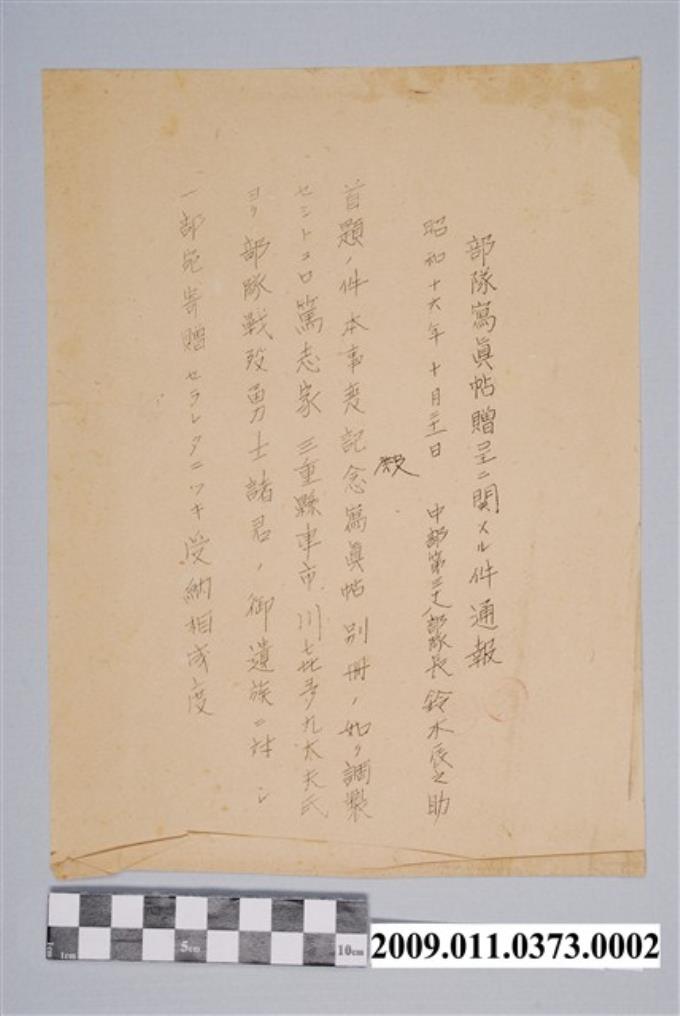 部隊寫眞帖贈呈ニ関スル件通報
昭和十六年十月三十一日 中部第三十八部隊長鈴木辰之助
殿
首題ノ件本事変記念寫眞帖別冊ノ如ク調製
セシトコロ篤志家三重縣津市川喜多九太夫氏
ヨリ部隊戰歿勇士諸君ノ御遺族ニ対シ
一部宛寄贈セラレタニツキ受納相成度
1cm
5cm
10cm
2009.011.0373.0002